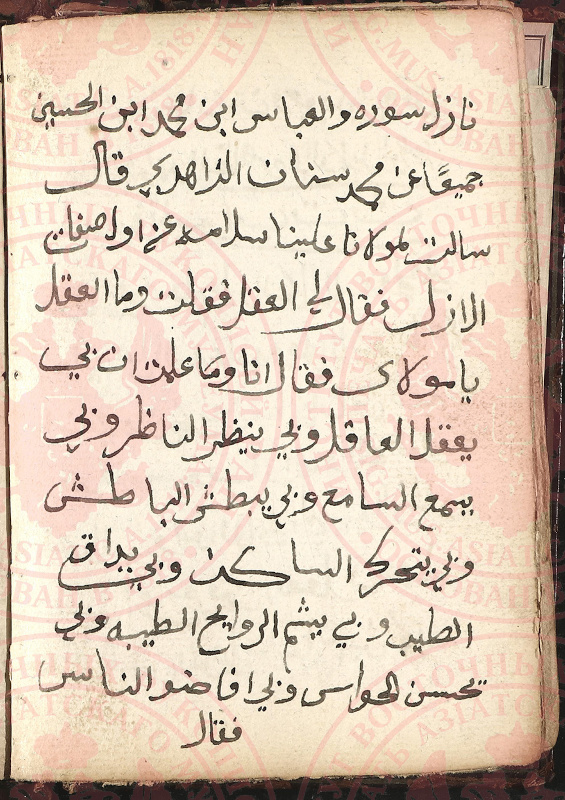 نازل سوره والعباس ابن محمد ابن الحسين
جميعًا عن محمد سنان الزاهدي قال
سالت لمولانا علينا سلامه عن اول صفات
الازل فقال لي العقل فقلت وما العقل
يا مولاى فقال انا وما علمت ان بي
يعقل العاقل وبي ينظر الناظر وبي
يسمع السامع وبي يبطش الباطش
وبي يتحرك الساكن وبي يداق
الطيب وبي يشم الروايح الطيبه وبي
تحسن الحواس وبي افاضو الناس
فقال